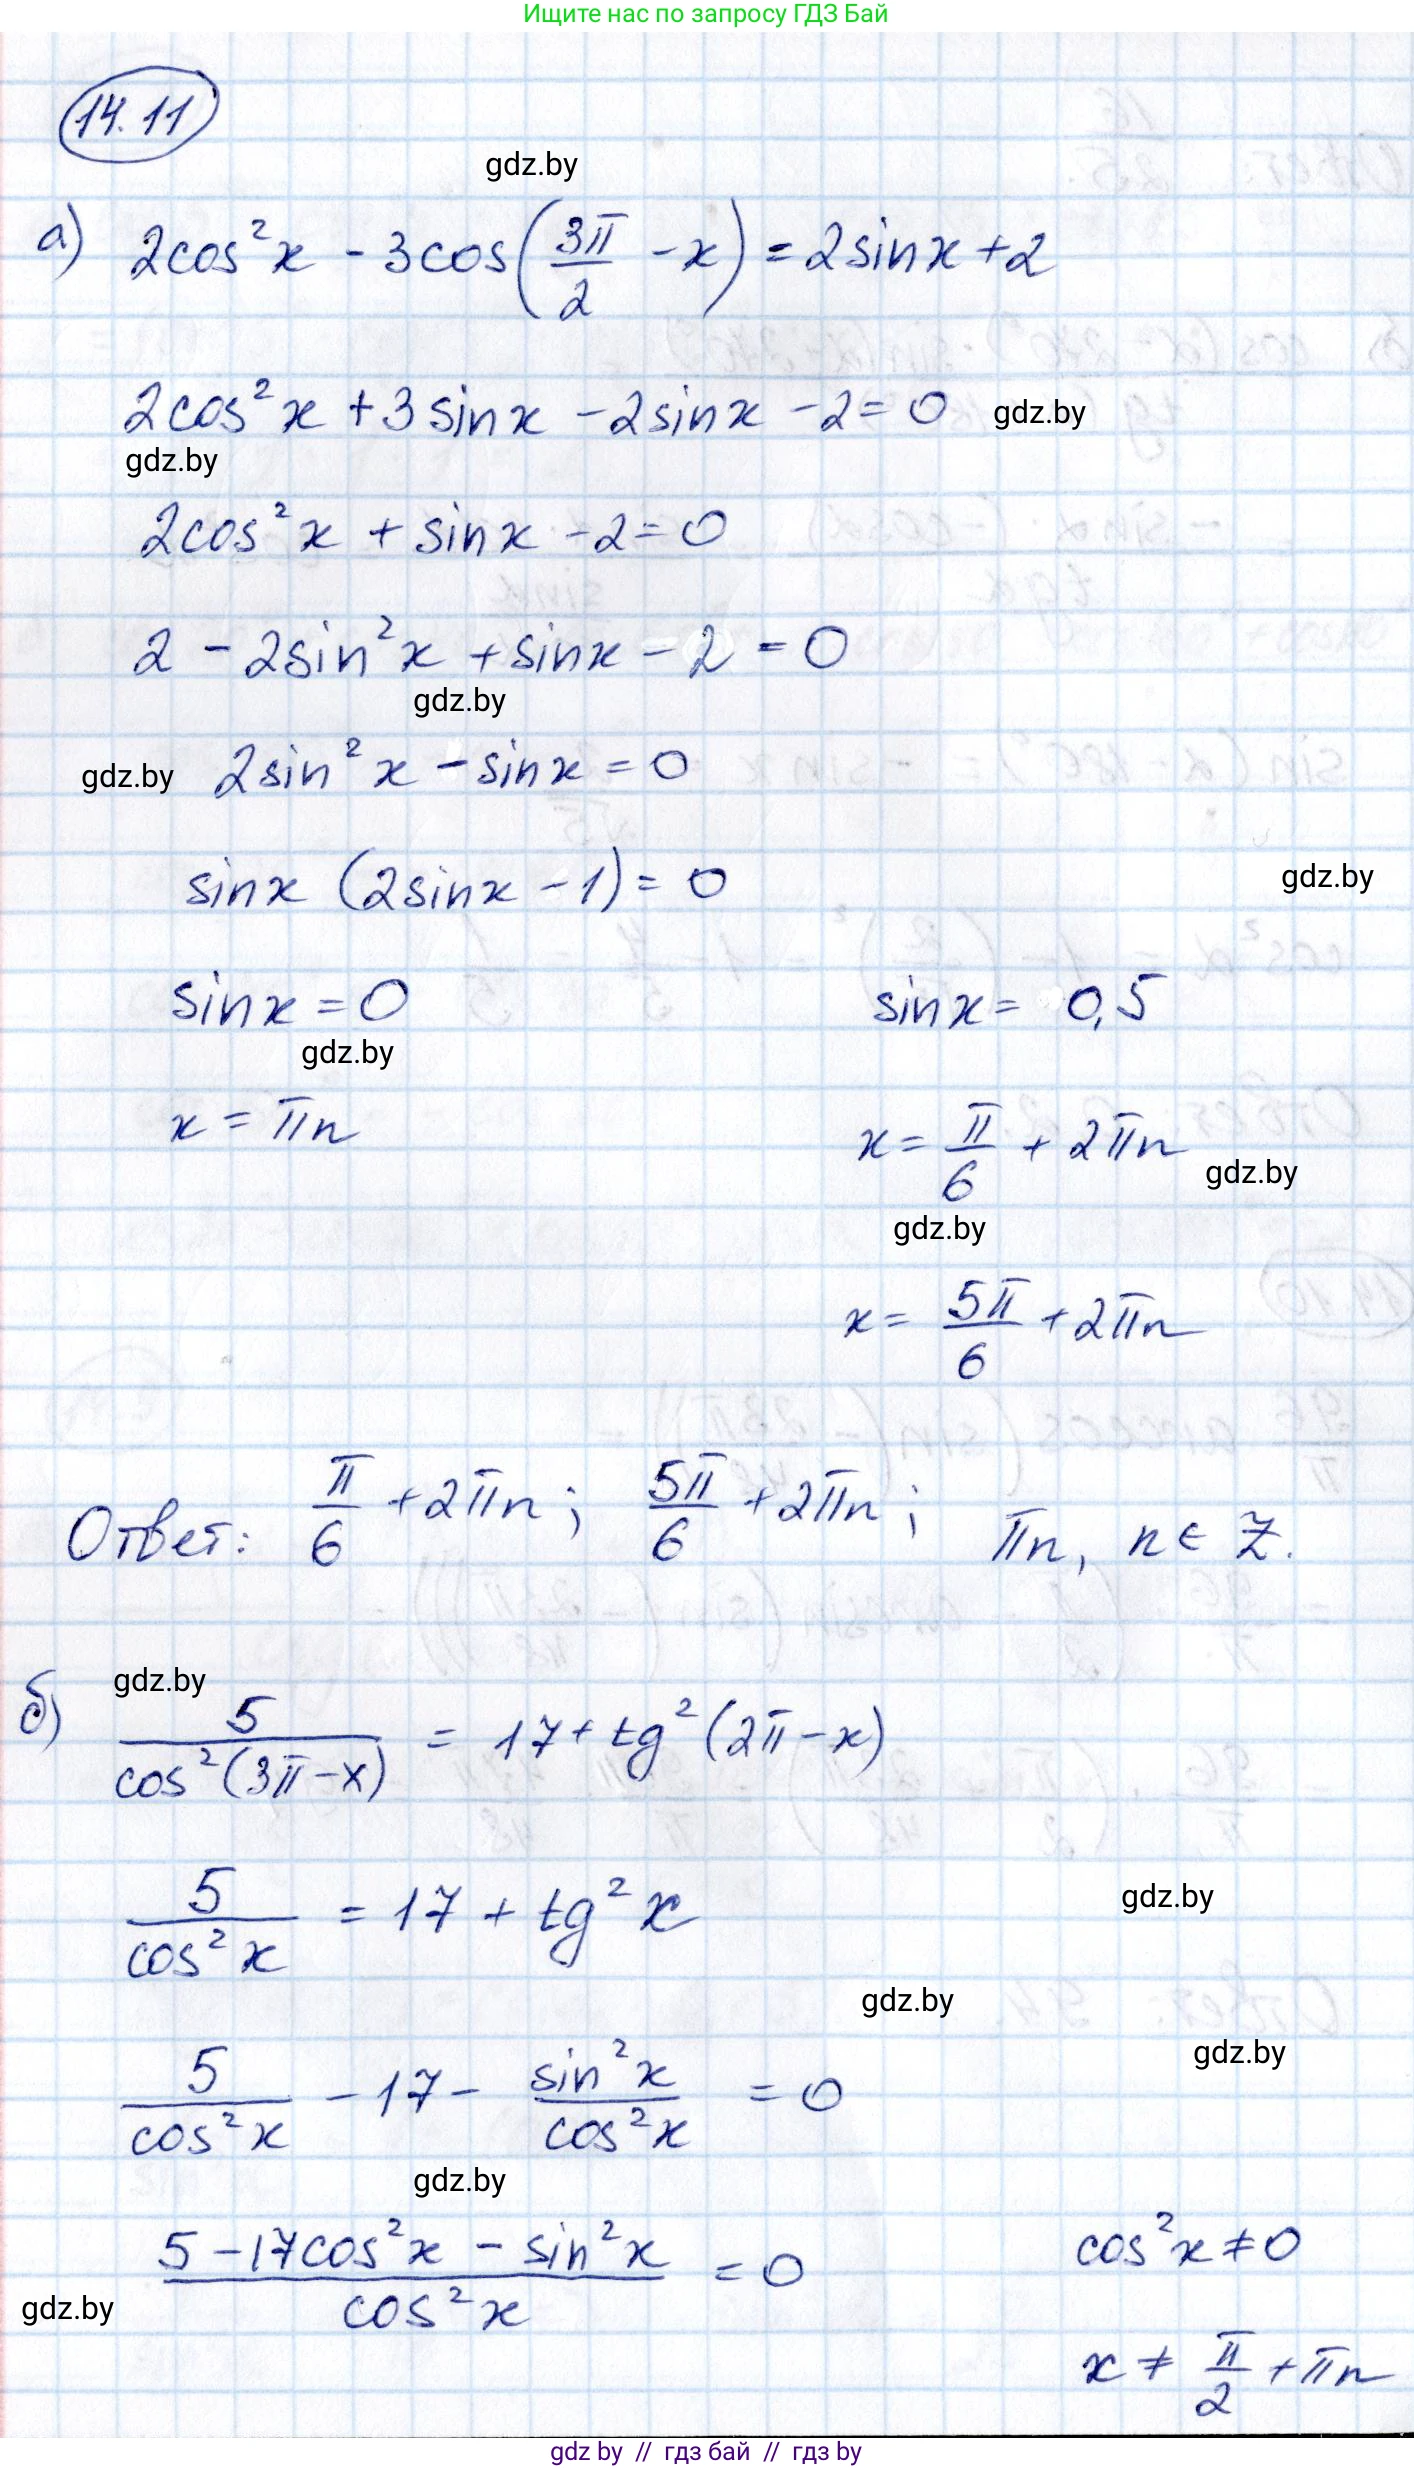 Ищите нас по запросу ГДЗ Бай
14.11
gdz.by
а) 2cos²x - 3cos(3π/2 - x) = 2sinx + 2
2cos²x + 3sinx - 2sinx - 2 = 0 gdz.by
gdz.by
2cos²x + sinx - 2 = 0
2 - 2sin²x + sinx - 2 = 0
gdz.by
gdz.by 2sin²x - sinx = 0
sinx (2sinx - 1) = 0 gdz.by
sinx = 0 sinx = 0,5
gdz.by
x = πn x = π/6 + 2πn
gdz.by
gdz.by
x = 5π/6 + 2πn
Ответ: π/6 + 2πn; 5π/6 + 2πn; πn, n ∈ Z.
gdz.by
б) 5/cos²(3π-x) = 17 + tg²(2π-x)
5/cos²x = 17 + tg²x gdz.by
gdz.by
gdz.by
5/cos²x - 17 - sin²x/cos²x = 0
gdz.by
(5 - 17cos²x - sin²x)/cos²x = 0 cos²x ≠ 0
gdz.by
x ≠ π/2 + πn
gdz by // гдз бай // гдз by